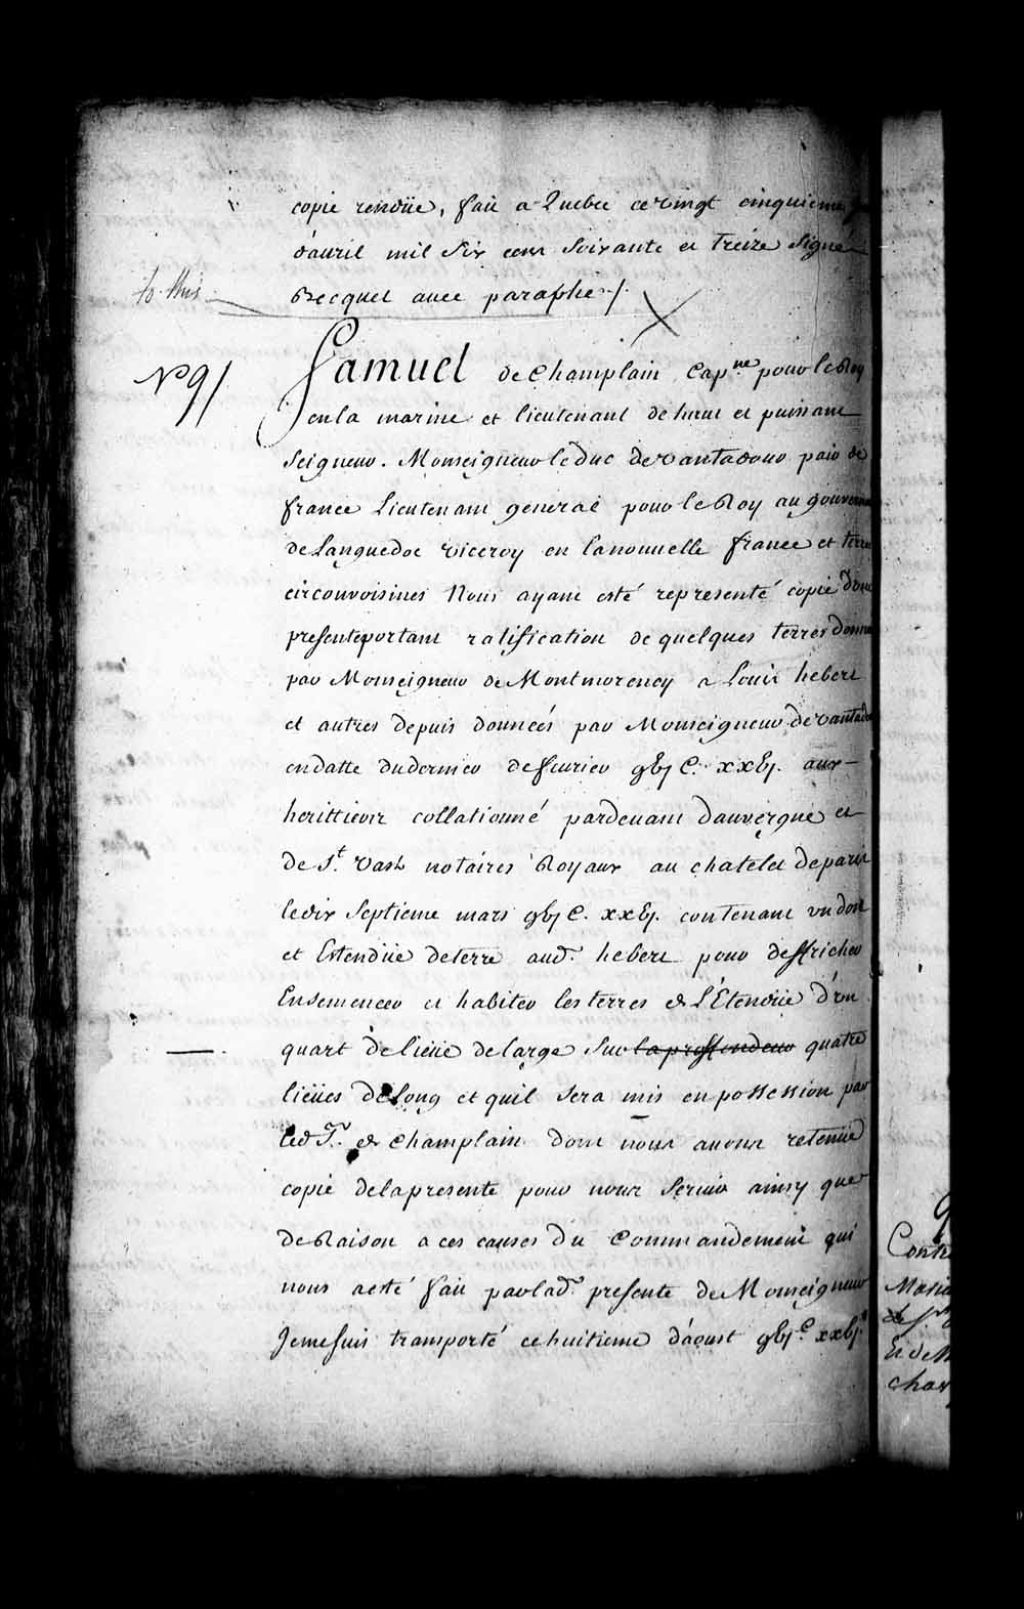 copie rendüe, fait a Quebec ce vingt cinquieme
d'auril mil six cens soixante et treize signé
to this
Becquet auec paraphe ./.
N° 9
Samuel de Champlain Cap.ne pour le Roy
en la marine et lieutenant de haut et puissant
Seigneur. Monseigneur le duc de vantadour pair de
france Lieutenant general pour le Roy au gouverne
de Languedoc viceroy en la nouuelle france et terres
circonvoisines Nous ayant esté representé copie dune
presente portant ratification de quelques terres donne
par Monseigneur de Montmorency a Louis hebert
et autres depuis donneés par Monseigneur de vantado
en datte du dernier de feurier gbj C. xxbj. aux
herittiers collationné pardeuant dauvergne et
de S.t vash notaires Royaux au chatelet de paris
le dix septieme mars gbj C. xxbj. contenant un don
et Estendüe de terre aud. hebert pour deffricher
Ensemencer et habiter les terres de L'Etendüe d'un
quart de lieüe de large sur la proffondeur quatre
lieües de long et quil sera mis en possession par
led S.r de Champlain dont nous auons retenüe
copie de la presente pour nous seruir ainsy que
de Raison a ces causes du Commandement qui
nous a esté fait par lad. presente de Monseigneur
Je me suis transporté ce huitieme d'aoust gbj.C xxbj.
Cont